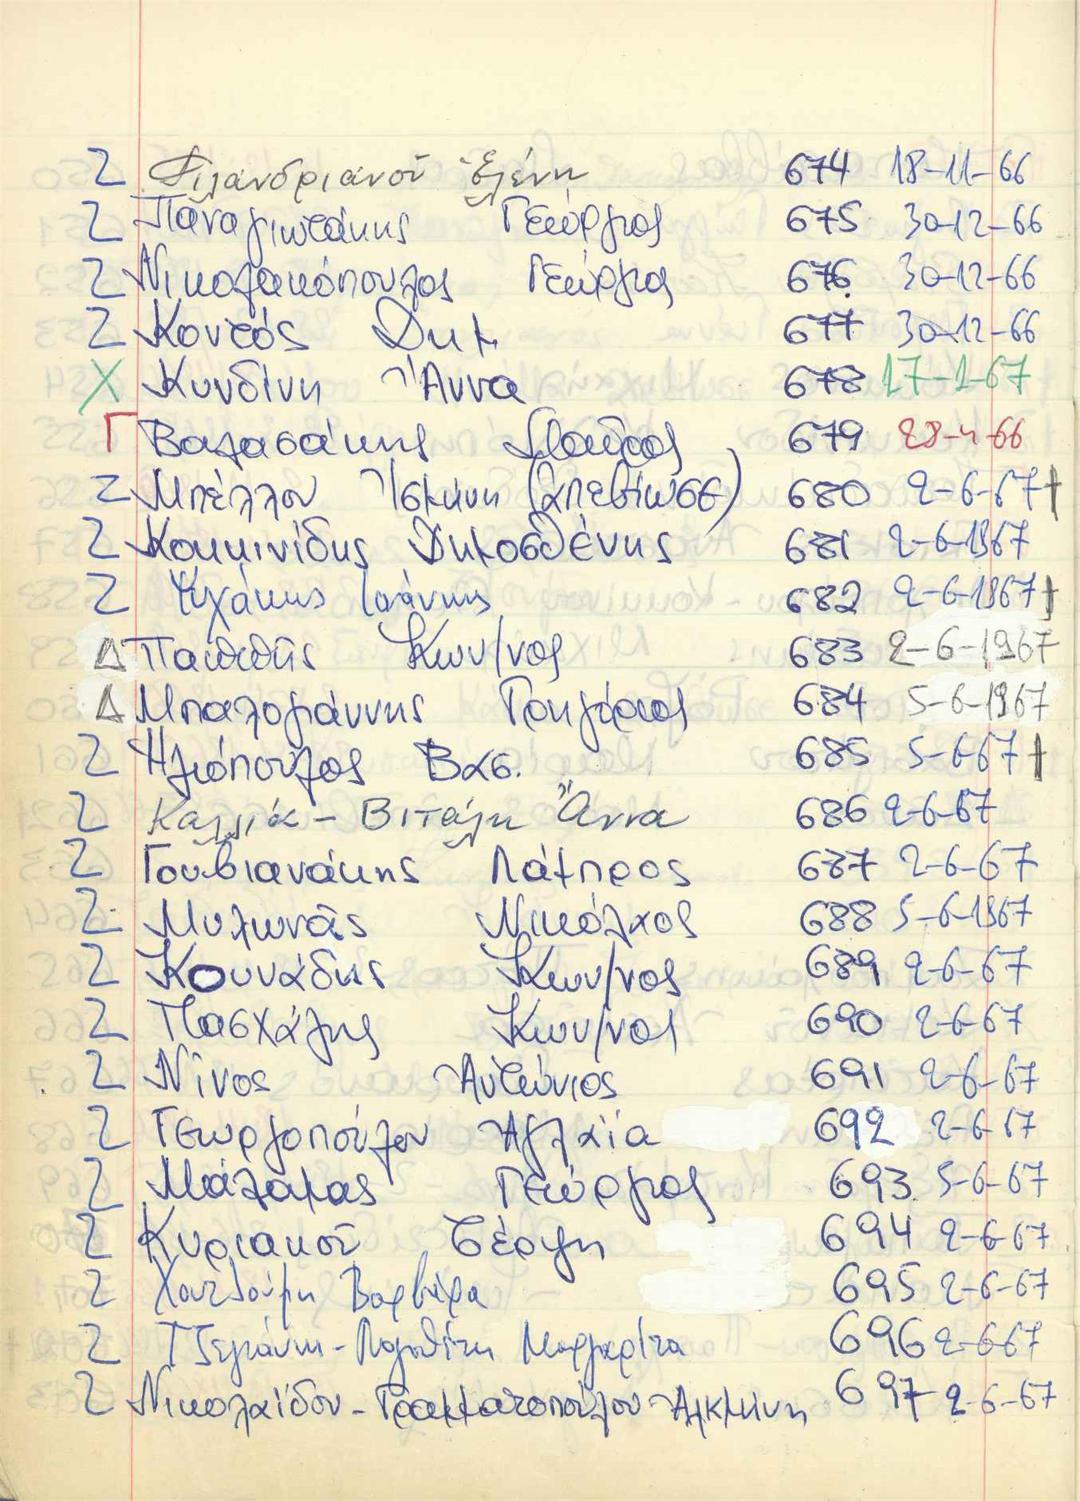 Ζ Φιλανδριανοῦ Ἑλένη 674 18-11-66
Ζ Παναγιωτάκης Γεώργιος 675 30-12-66
Ζ Νικολακόπουλος Γεώργιος 676 30-12-66
Ζ Κοντός Δημ 677 30-12-66
Χ Κυνδίνη Ἄννα 678 17-1-67
Γ Βαλασάκης Σταῦρος 679 28-4-66
Ζ Μπέλλου Ἰσμήνη (ἀπεβίωσε) 680 2-6-67 †
Ζ Κοκκινίδης Δημοσθένης 681 2-6-1967
Ζ Ψυχάκης Ἰωάννης 682 2-6-1967 †
Δ Κων/νος 683 2-6-1967
Δ Μπαλογιάννης Γρηγόριος 684 5-6-1967
Ζ Ἡλιόπουλος Βασ. 685 5-6-67 †
Ζ Βιτάλη Ἄννα 686 2-6-67
Ζ Γουβιανάκης Λάμπρος 687 2-6-67
Ζ Μυλωνᾶς Νικόλαος 688 5-6-1967
Ζ Κουνάδης Κων/νος 689 2-6-67
Ζ Πασχάλης Κων/νος 690 2-6-67
Ζ Νίνος Ἀντώνιος 691 2-6-67
Ζ Γεωργοπούλου Ἀγλαΐα 692 2-6-67
Ζ Μάλαμας Γεώργιος 693 5-6-67
Ζ Κυριακοῦ 694 2-6-67
Ζ Βαρβάρα 695 2-6-67
Ζ Μαργαρίτα 696 2-6-67
Ζ Νικολαΐδου-Γραμματοπούλου Ἀλκμήνη 697 2-6-67